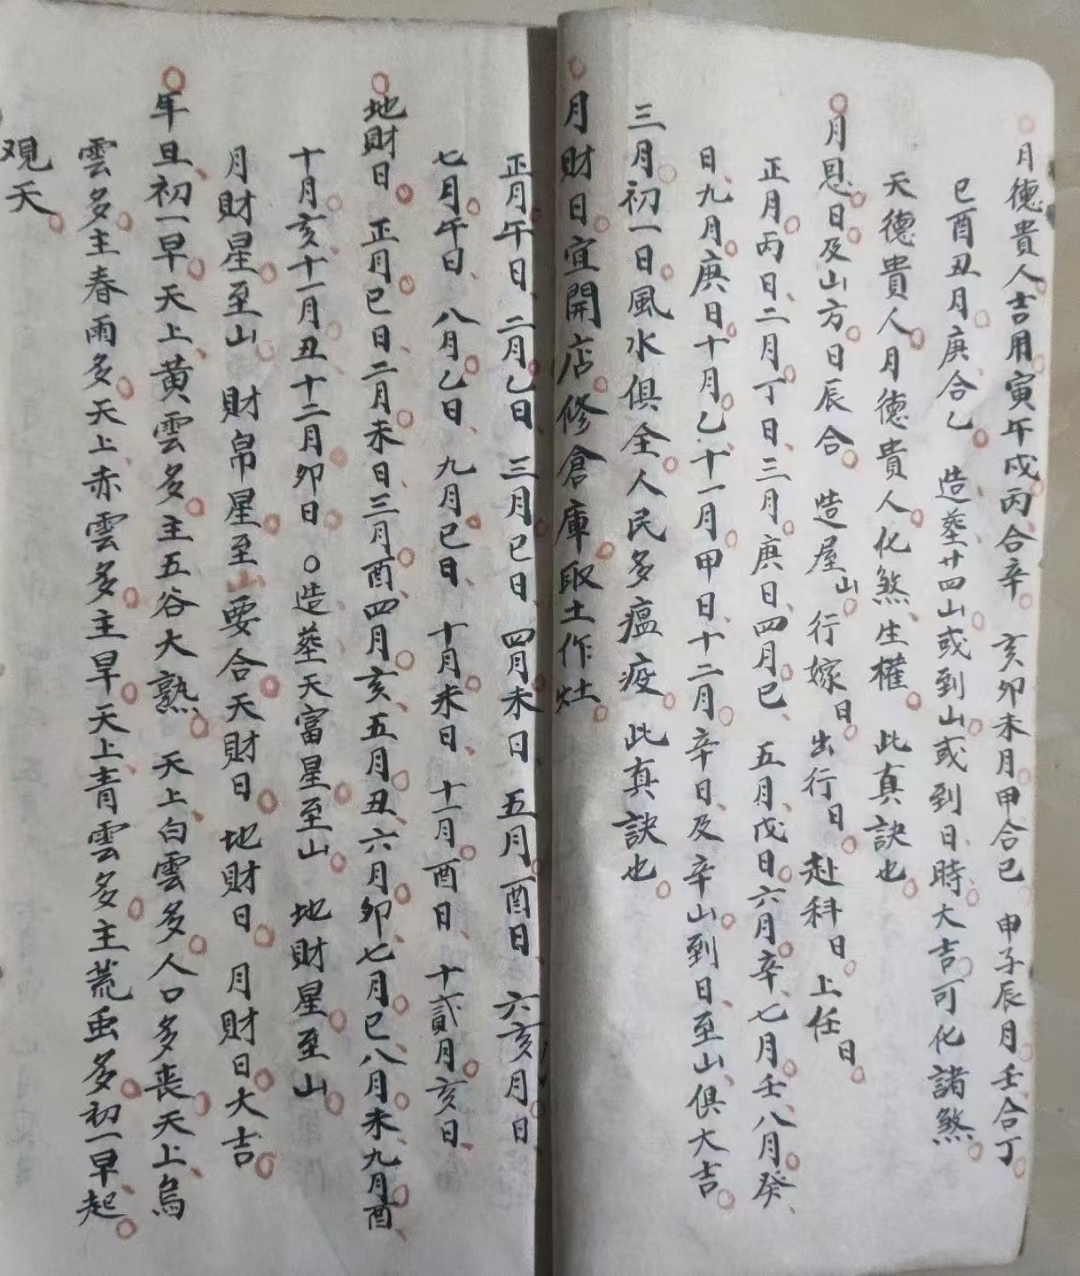 月德貴人吉用寅午戌丙合辛 亥卯未月甲合己 申子辰月壬合丁
巳酉丑月庚合乙 造葬廿四山或到山或到日時大吉可化諸煞
天德貴人月德貴人化煞生權 此真訣也
月恩日及山方日辰合 造屋山行嫁日出行日 赴科日上任日
正月丙日二月丁日三月庚日四月己 五月戊日六月辛七月壬八月癸
日九月庚日十月乙十一月甲日十二月辛日及辛山到日至山俱大吉
三月初一日風水俱全人民多瘟疫 此真訣也
月財日宜開店修倉庫取土作灶
正月午日二月乙日三月巳日四月未日五月酉日六亥月日
七月午日八月乙日九月巳日十月未日十一月酉日十貳月亥日
地財日 正月巳日二月未日三月酉四月亥五月丑六月卯七月巳八月未九月酉
十月亥十一月丑十二月卯日 造葬天富星至山 地財星至山
月財星至山 財帛星至山要合天財日地財日 月財日大吉
年旦初一早天上黃雲多主五谷大熟 天上白雲多人口多丧天上烏
雲多主春雨多天上赤雲多主旱天上青雲多主荒虫多初一早起
观天